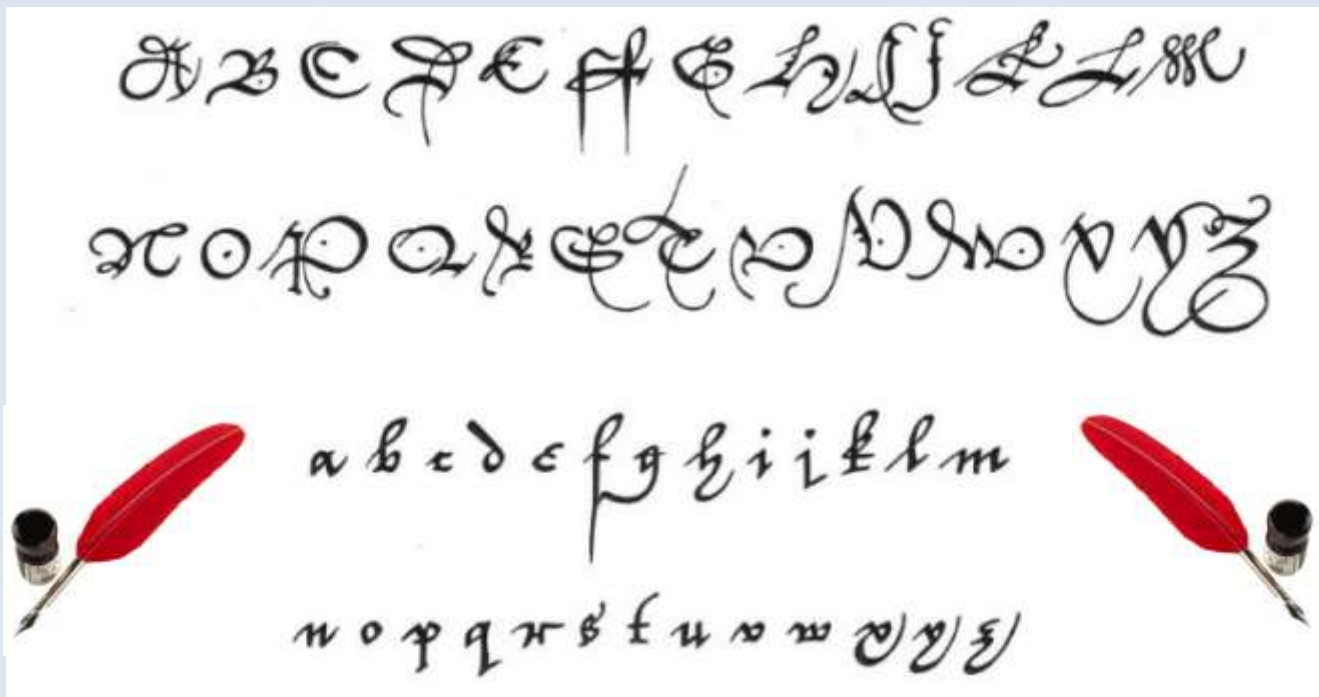 A B C D E ff G H I J K L M
N O P Q R S T U V W X Y Z
a b c d e f g h i j k l m
n o p q r s t u v w x y z